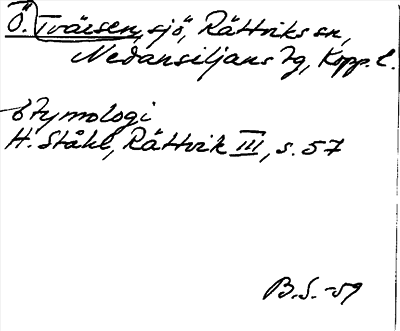 Ö. Tväesen, sjö, Rättviks sn,
Nedansiljans tg, Kopp. l.
Etymologi
H. Ståhl, Rättvik III, s. 57
B.S. -59